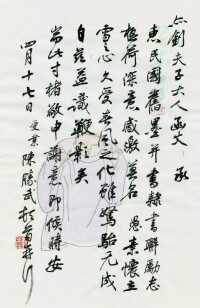 六劍夫子大人函丈 承
惠民國舊墨并書隸書聯勵志
極荷深意感激莫名 愚素懷立
雪心久受春風之化雖駑駘元成
自茲益識鞭影矣
耑此寸楮敬申謝意即候時安
受業 陳勝武
四月十七日